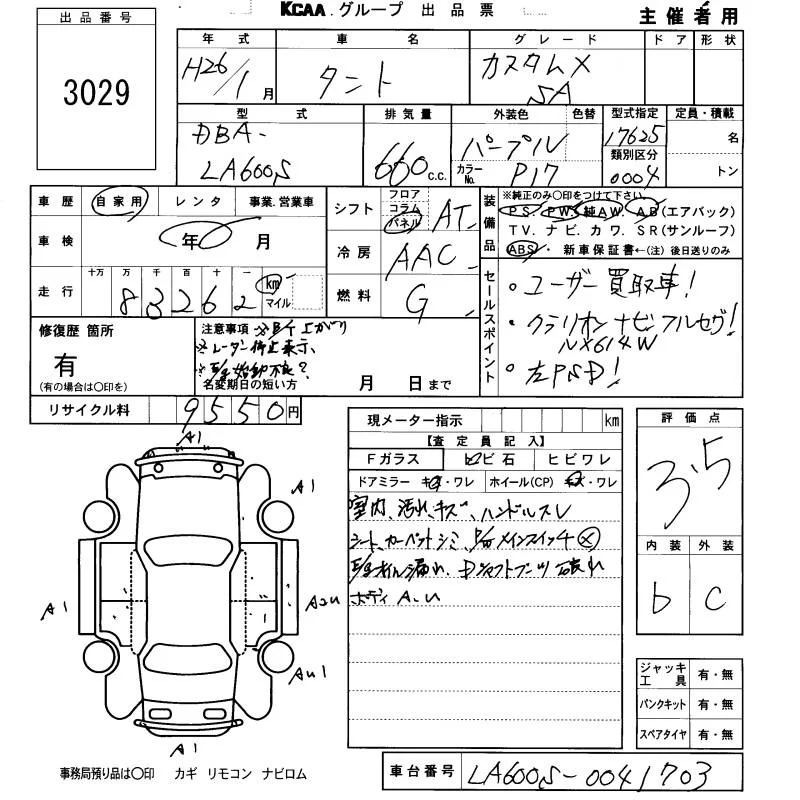 KCAA グループ 出品票
主催者用
出品番号
3029
年式 車名 グレード ドア 形状
H26/1月 タント カスタムX SA
型式 排気量 外装色 色替 型式指定 定員・積載
DBA-LA600S 660c.c. パープル 17625 名
カラーNo. P17 類別区分 0004 トン
車歴 自家用 レンタ 事業.営業車
車検 年 月
走行 十万 万 千 百 十 一 km マイル
8 3 2 6 2
シフト フロア コラム パネル AT
冷房 AAC
燃料 G
装備品 ※純正のみ〇印をつけて下さい
PS. PW. 純AW. AB(エアバック)
TV. ナビ. カワ. SR(サンルーフ)
ABS・ 新車保証書←(注)後日送りのみ
セールスポイント
・ユーザー買取車!
・クラリオンナビフルセグ!
NX614W
・左PSD!
修復歴 箇所
有
(有の場合は〇印を)
注意事項
※レーダー停止表示、
名変期日の短い方 月 日まで
リサイクル料 9550円
現メーター指示 km
【査定員記入】
Fガラス ビ石 ヒビワレ
ドアミラー キズ・ワレ ホイール(CP) キズ・ワレ
室内、汚れ、キズ、ハンドルスレ
シート、カーペットシミ、 メインスイッチ
オイル漏れ、 シャフトブーツ
ボディ A.U
評価点
3.5
内装 外装
b C
ジャッキ工具 有・無
パンクキット 有・無
スペアタイヤ 有・無
A1
A1
A1
A2U
AU1
A1
事務局預り品は〇印 カギ リモコン ナビロム
車台番号 LA600S-0041703